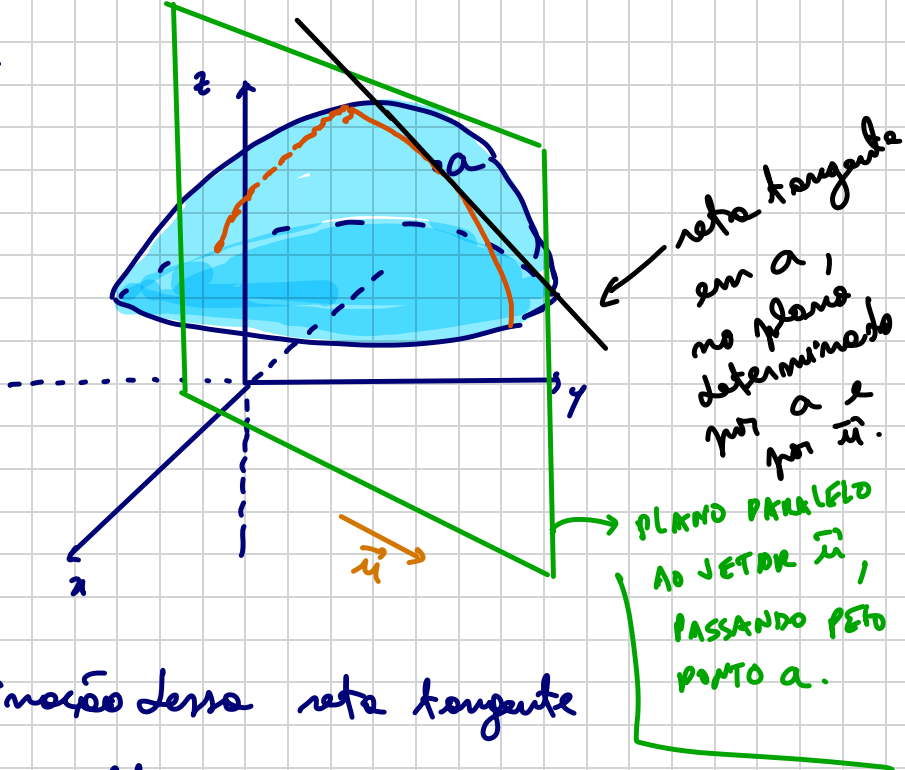 z
a
reta tangente
em a,
no plano
determinado
por a e
por u⃗.
y
x
u⃗
PLANO PARALELO
AO VETOR u⃗,
PASSANDO PELO
PONTO a.
mação dessa reta tangente